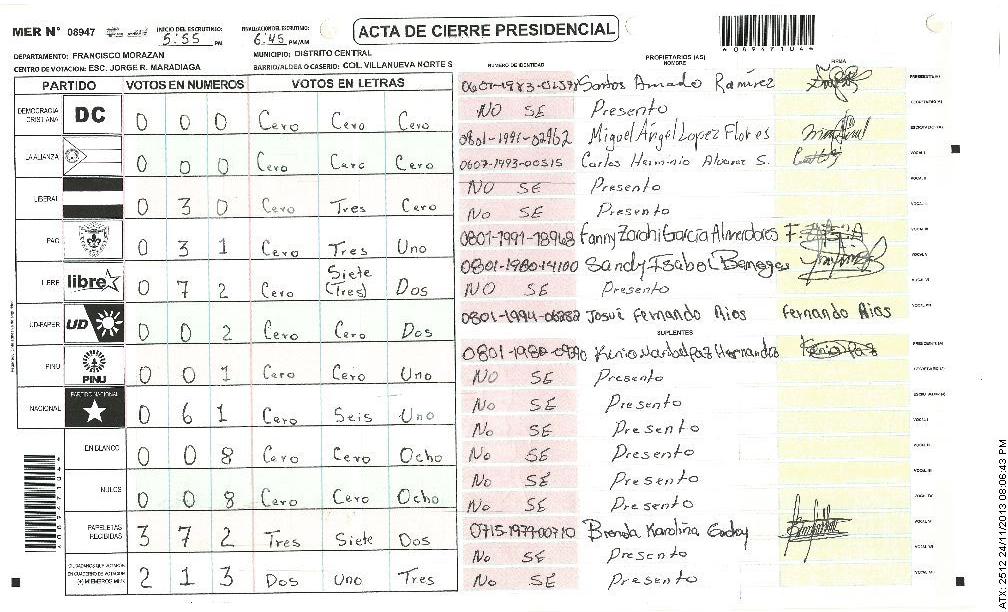 MER N° 08947
INICIO DEL ESCRUTINIO:
5:55 PM
FINALIZACION DEL ESCRUTINIO:
6:45 PM/AM
ACTA DE CIERRE PRESIDENCIAL
DEPARTAMENTO: FRANCISCO MORAZAN
MUNICIPIO: DISTRITO CENTRAL
CENTRO DE VOTACION: ESC. JORGE R. MARADIAGA
BARRIO/ALDEA O CASERIO: COL. VILLANUEVA NORTE S
PARTIDO VOTOS EN NUMEROS VOTOS EN LETRAS
DEMOCRACIA CRISTIANA DC 0 0 0 Cero Cero Cero
LA ALIANZA 0 0 0 Cero Cero Cero
LIBERAL 0 3 0 Cero Tres Cero
PAC 0 3 1 Cero Tres Uno
LIBRE libre 0 7 2 Cero Siete (Tres) Dos
UD-FAPER UD 0 0 2 Cero Cero Dos
PINU PINU 0 0 1 Cero Cero Uno
NACIONAL PARTIDO NACIONAL 0 6 1 Cero Seis Uno
EN BLANCO 0 0 8 Cero Cero Ocho
NULOS 0 0 8 Cero Cero Ocho
PAPELETAS RECIBIDAS 3 7 2 Tres Siete Dos
CIUDADANOS QUE VOTARON EN CUADERNO DE VOTACION (+) MIEMBROS MER 2 1 3 Dos Uno Tres
NUMERO DE IDENTIDAD
PROPIETARIOS (AS)
NOMBRE
FIRMA
Santos Amado Ramirez
NO SE Presento
0801-1991-02962 Miguel Ángel Lopez Flores
0607-1993-00515 Carlos Herminio Alvarez S.
NO SE Presento
No SE Presento
0801-1991-18968 Fanny Zarahi Garcia Almendares
0801-1980-14100 Sandy Isabel Banegas
NO SE Presento
0801-1994-06282 Josué Fernando Rios Fernando Rios
SUPLENTES
NO SE Presento
No SE Presento
No SE Presento
No SE Presento
No SE Presento
No SE Presento
0715-1979-00710 Brenda Karolina Godoy
No SE Presento
No SE Presento
ATX 2512 24/11/2013 08:06:43 PM